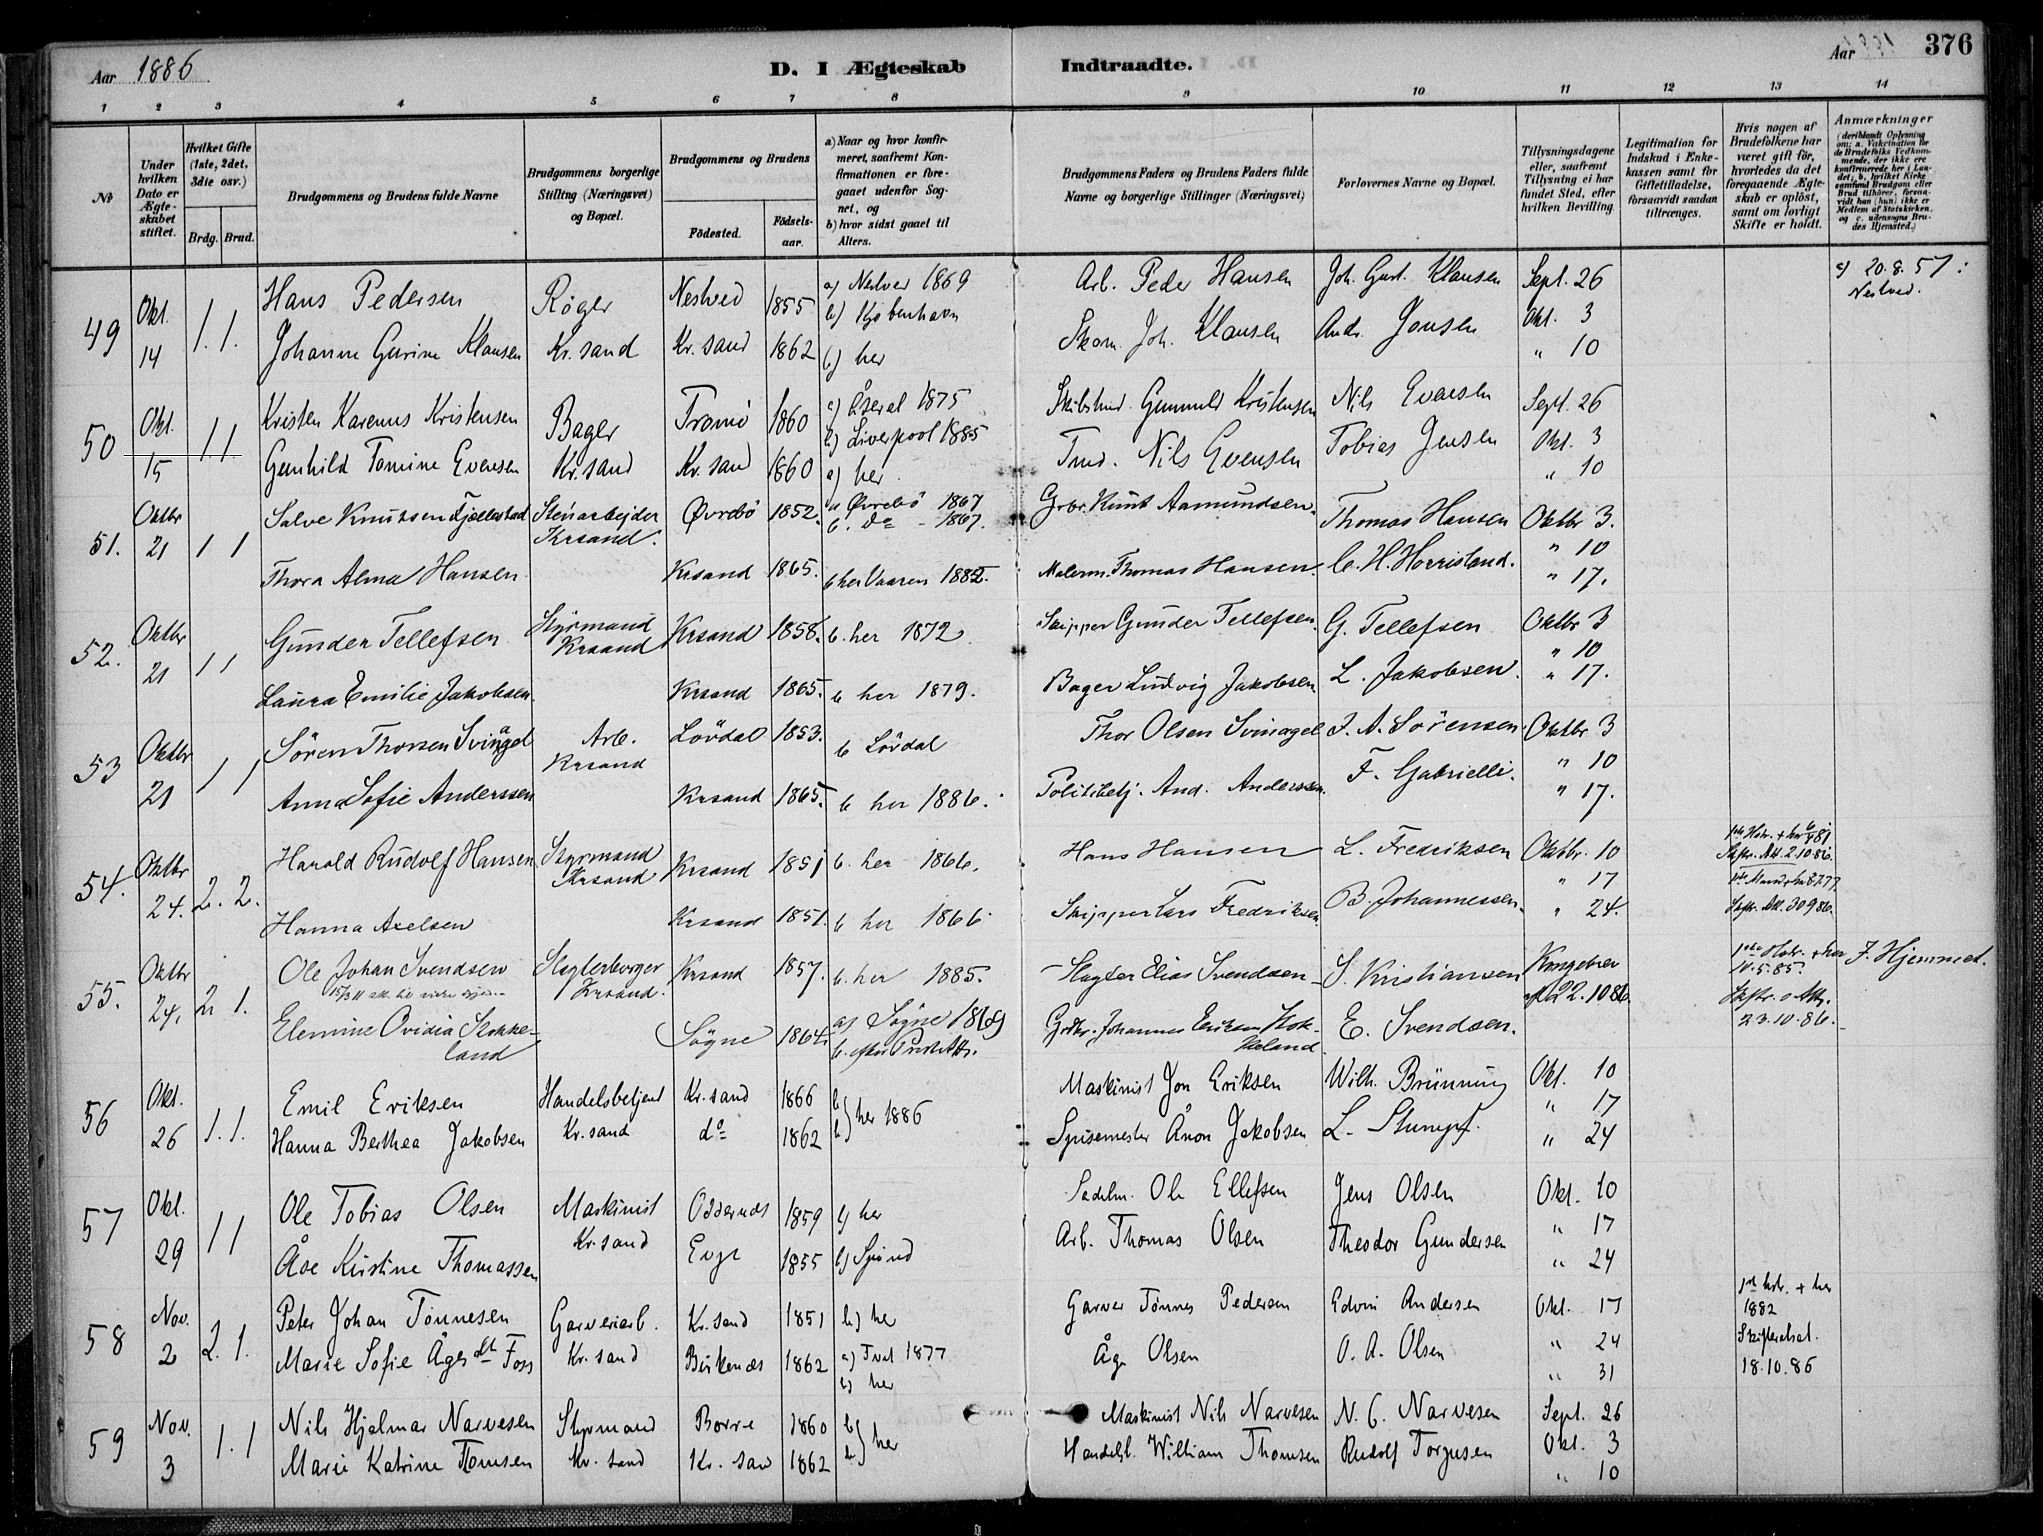 Aar 1886
D. I Ægteskab Indtraadte.
Aar
376
1 2 3 4 5 6 7 8 9 10 11 12 13 14
№
Under hvilken Dato er Ægteskabet stiftet.
Hvilket Gifte (1ste, 2det, 3die osv.)
Brdg. Brud.
Brudgommens og Brudens fulde Navne
Brudgommens borgerlige Stilling (Næringsvei) og Bopæl.
Brudgommens og Brudens
Födested.
Födselsaar.
a) Naar og hvor konfirmeret, saafremt Konfirmationen er foregaaet udenfor Sognet, og
b) hvor sidst gaaet til Alters.
Brudgommens Faders og Brudens Faders fulde Navne og borgerlige Stillinger (Næringsvei)
Forlovernes Navne og Bopæl.
Tillysningsdagene eller, saafremt Tillysning ei har fundet Sted, efter hvilken Bevilling
Legitimation for Indskud i Enkekassen samt for Giftetilladelse, forsaavidt saadan tiltrænges.
Hvis nogen af Brudefolkene har været gift för, hvorledes da det foregaaende Ægteskab er oplöst, samt om lovligt Skifte er holdt.
Anmærkninger
(deriblandt Oplysning om: a. Vakcination for de Brudefolks Vedkommende, der ikke ere konfirmerede her i Landet; b. hvilket Kirkesamfund Brudgom eller Brud tilhörer, forsaavidt han (hun) ikke er Medlem af Statskirken, og c. udensogns Brudes Hjemsted.)
49 Okt. 14 1. 1. Hans Pedersen Røger Nestved 1855 a) Nestver 1869 Arb. Peder Hansen Joh. Gust. Klausen Sept. 26 a) 20.8.57:
b) Kjøbenhavn Okt. 3 Nestved.
Johanne Gurine Klausen Kr. sand Kr. sand 1862 b) her Skom. Joh. Klausen Andr. Jonsen " 10
50 Okt. 15 1 1 Kristen Karenus Kristensen Bager Tromö 1860 a) Åseral 1875 Skibstmd. Gunnuld Kristensen Nils Evensen Sept. 26
b) Liverpool 1885 Okt. 3
Gunhild Tomine Evensen Kr. sand Kr. sand 1860 a) her Tmd. Nils Evensen Tobias Jensen " 10
51. Oktbr 21 1 1 Salve Knutsen Fjellestad Stenarbejder Øvrebö 1852. a Øvrebö 1867 Grbr. Knut Aamundsen. Thomas Hansen Oktbr 3.
Krsand. b. do - 1867. " 10
Thora Alma Hansen Krsand 1865. b her Vaaren 1882. Malerm. Thomas Hansen. C. H. Horrisland. " 17.
52. Oktbr 21 1 1 Gunder Tellefsen Styrmand Krsand Krsand 1858. b. her 1872 Skipper Gunder Tellefsen. G. Tellefsen Oktbr 3
" 10
Laura Emilie Jakobsen. Krsand 1865. b her 1879. Bager Ludvig Jakobsen. L. Jakobsen. " 17.
53 Oktbr 21 1 1 Sören Thorsen Svinagel Arb. Krsand Lövdal 1853. b Lövdal Thor Olsen Svinagel J. A. Sörensen Oktbr 3
" 10
Anna Sofie Anderssen Krsand 1865. b her 1886. Politibetj. And. Anderssen. F. Gabrielli. " 17.
54. Oktbr 24. 2. 2. Harald Rudolf Hansen Styrmand Krsand Krsand 1851 b. her 1866. Hans Hansen L. Fredriksen Oktbr. 10
Skftr. Att. 2.10.86.
" 17
Hanna Axelsen Krsand 1851. b her 1866. Skipper Lars Fredriksen. B. Johannessen. " 24. Skftr. Att. 30986.
55. Oktbr 24. 2 1. Ole Johan Svendsen Slagterborger Krsand. Krsand 1857. b. her 1885. Slagter Elias Svendsen S. Kristiansen Kongebrev 1ste Hstr. + her 10.5.85. I Hjemmet.
af 22.10.86.
Elemine Ovidia Stokkeland Sögne 1864. a) Sögne 1869 Grbr. Johannes Eriksen Stokkeland E. Svendsen. Skftr. Att. 23.10.86.
56 Okt. 26 1. 1. Emil Eriksen Handelsbetjent Kr. sand 1866 b) her 1886 Maskinist Jon Eriksen Wilh. Brünning Okt. 10
" 17
Hanna Berthea Jakobsen Kr. sand do 1862 b) Spisemester Åron Jakobsen L. Stumpf. " 24
57 Okt. 29 1 1 Ole Tobias Olsen Maskinist Oddernes 1859 b) her Sadelm. Ole Ellefsen Jens Olsen Okt. 10
" 17
Åse Kirstine Thomassen Kr. sand Evje 1855 b) Spind Arb. Thomas Olsen Theodor Gundersen " 24
58 Nov. 2 2. 1. Peter Johan Tönnesen Garveriarb. Kr. sand 1851 b) her Garver Tönnes Pedersen Edvin Andersen Okt. 17 1ste hstr. + her 1882
" 24 Skifteratest.
Marie Sofie Ågesdt Foss Kr. sand Birkenes 1862 a) Tvet 1877 Åge Olsen O. A. Olsen " 31 18.10.86
b) her
59 Nov. 3 1. 1 Nils Hjalmar Narvesen Styrmand Borre 1860 b) her Maskinist Nils Narvesen N. C. Narvesen Sept. 26
Okt. 3
Marie Katrine Thomsen Kr. sand Kr. san 1862 b) Handelsb. William Thomsen Rudolf Torjusen " 10